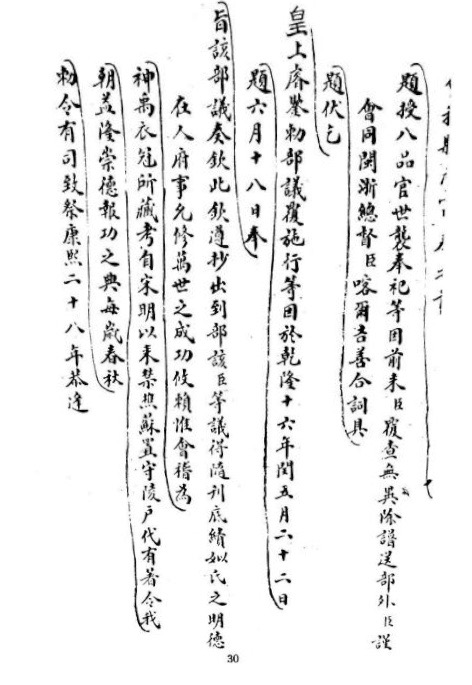 題授八品官世襲奉祀等因前来臣覆查無異除譜送部外臣謹
會同閩浙總督臣喀爾吉善合詞具
題伏乞
皇上睿鑒勅部議覆施行等因於乾隆十六年閏五月二十二日
題六月十八日奉
旨該部議奏欽此欽遵抄出到部該臣等議得隨刊底績姒氏之明德
在人府事允修萬世之成功攸賴惟會稽為
神禹衣冠所藏考自宋明以来禁樵蘇置守陵户代有著令我
朝益隆崇德報功之典每歲春秋
勅令有司致祭康熙二十八年恭逢
30